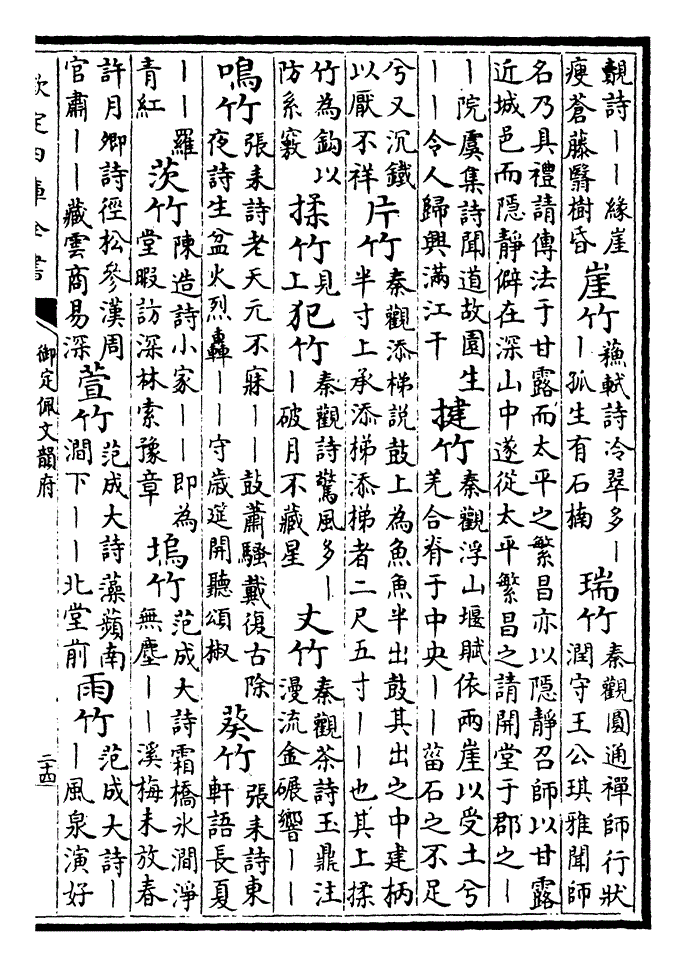 覿詩——緣崖
瘦蒼藤翳樹昏
崖竹
蘇軾詩冷翠多—
—孤生有石楠
瑞竹
秦觀圓通禪師行狀
潤守王公琪雅聞師
名乃具禮請傳法于甘露而太平之繁昌亦以隱靜召師以甘露
近城邑而隱靜僻在深山中遂從太平繁昌之請開堂于郡之—
—院虞集詩聞道故園生
——令人歸興滿江干
揵竹
秦觀浮山堰賦依兩崖以受土兮
羌合脊于中央——菑石之不足
兮又沉鐵
以厭不祥
片竹
秦觀添梯說鼓上為魚魚半出鼓其出之中建柄
半寸上承添梯添梯者二尺五寸——也其上揉
竹為鈎以
防系竅
揉竹
見
上
犯竹
秦觀詩驚風多—
—破月不藏星
丈竹
秦觀茶詩玉鼎注
漫流金碾響——
鳴竹
張耒詩老天元不寐——鼓蕭騷戴復古除
夜詩生盆火烈轟——守歲筵開聽頌椒
葵竹
張耒詩東
軒語長夏
——羅
青紅
茨竹
陳造詩小家——即為
堂暇訪深林索豫章
塢竹
范成大詩霜橋氷澗淨
無塵——溪梅未放春
許月卿詩徑松參漢周
官肅——藏雲商易深
萱竹
范成大詩藻蘋南
澗下——北堂前
雨竹
范成大詩—
—風泉演好
欽定四庫全書
御定佩文韻府
二十四